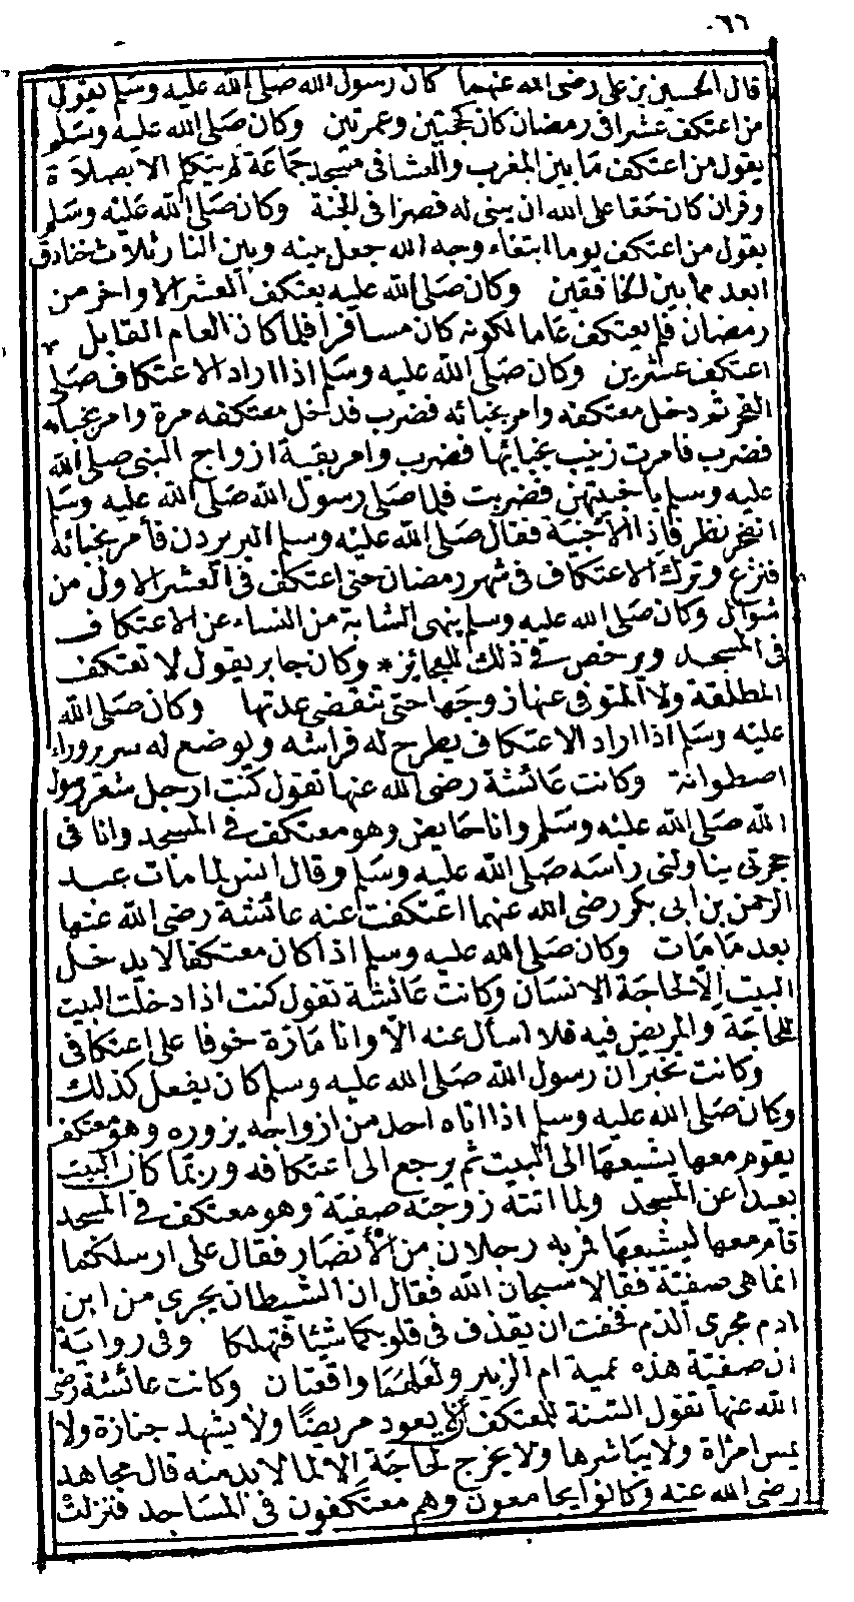 ٠٦٦
قال الحسين بن علي رضي الله عنهما كان رسول الله صلى الله عليه وسلم يقول
من اعتكف عشرا في رمضان كان كحجتين وعمرتين وكان صلى الله عليه وسلم
يقول من اعتكف ما بين المغرب والعشا في مسجد جماعة لم يتكلم الا بصلاة
وقران كان حقا على الله ان يبنى له قصرا في الجنة وكان صلى الله عليه وسلم
يقول من اعتكف يوما ابتغاء وجه الله جعل بينه وبين النار ثلاث خنادق
ابعد مما بين الخافقين وكان صلى الله عليه يعتكف العشر الاواخر من
رمضان فلم يعتكف عاما لكونه كان مسافرا فلما كان العام القابل
اعتكف عشرين وكان صلى الله عليه وسلم اذا اراد الاعتكاف صلى
الفجر ثم دخل معتكفه وامر بخبائه فضرب فدخل معتكفه مرة وامر بخبائه
فضرب فامرت زينب بخبائها فضرب وامر بقية ازواج النبى صلى الله
عليه وسلم باخبيتهن فضربت فلما صلى رسول الله صلى الله عليه وسلم
الفجر نظر فاذا الأخبية فقال صلى الله عليه وسلم البر يردن فأمر بخبائه
فنزع وترك الاعتكاف في شهر رمضان حتى اعتكف في العشر الاول من
شوال وكان صلى الله عليه وسلم ينهى الشابة من النساء عن الاعتكاف
في المسجد ويرخص في ذلك للعجائز * وكان جابر يقول لا تعتكف
المطلقة ولا المتوفى عنها زوجها حتى تنقضى عدتها وكان صلى الله
عليه وسلم اذا اراد الاعتكاف يطرح له فراشه ويوضع له سرير وراء
اصطوانة وكانت عائشة رضى الله عنها تقول كنت ارجل شعر رسول
الله صلى الله عليه وسلم وانا حايض وهو معتكف في المسجد وانا في
حجرتى يناولنى راسه صلى الله عليه وسلم وقال انس لما مات عبد
الرحمن بن ابى بكر رضى الله عنهما اعتكفت عنه عائشة رضى الله عنها
بعد ما مات وكان صلى الله عليه وسلم اذا كان معتكفا لا يدخل
البيت الا لحاجة الانسان وكانت عائشة تقول كنت اذا دخلت البيت
للحاجة والمريض فيه فلا اسأل عنه الا وانا مارة خوفا على اعتكافى
وكانت تخبر ان رسول الله صلى الله عليه وسلم كان يفعل كذلك
وكان صلى الله عليه وسلم اذا اتاه احد من ازواجه يزوره وهو معتكف
يقوم معها يشيعها الى البيت ثم يرجع الى اعتكافه وربما كان البيت
بعيدا عن المسجد ولما اتته زوجته صفية وهو معتكف في المسجد
قام معها ليشيعها فمر به رجلان من الأنصار فقال على ارسلكما
انما هى صفية فقالا سبحان الله فقال ان الشيطان يجرى من ابن
ادم مجرى الدم فخفت ان يقذف في قلوبكما شيئا فتهلكا وفى رواية
ان صفية هذه عمية ام الزبير ولعلهما واقعتان وكانت عائشة رضى
الله عنها تقول السنة للمعتكف ألا يعود مريضا ولا يشهد جنازة ولا
يمس امرأة ولا يباشرها ولا يخرج لحاجة الا لما لا بد منه قال مجاهد
رضى الله عنه وكانوا يجامعون وهم معتكفون في المساجد فنزلت